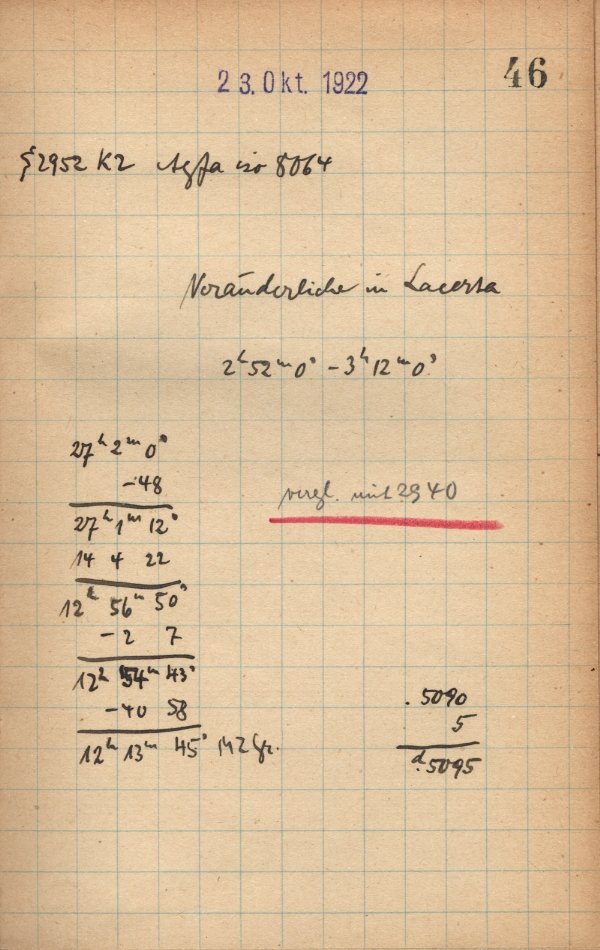 23. Okt. 1922
46
§2952 K2 Agfa iso 8064
Veränderliche in Lacerta
2ʰ52ᵐ0ˢ – 3ʰ12ᵐ0ˢ
27ʰ2ᵐ0ˢ
-48
vergl. mit 2940
27ʰ1ᵐ12ˢ
14 4 22
12ʰ56ᵐ50ˢ
-2 7
12ʰ54ᵐ43ˢ
-40 58
12ʰ13ᵐ45ˢ MZ Gr.
.5090
5
ᵈ.5095